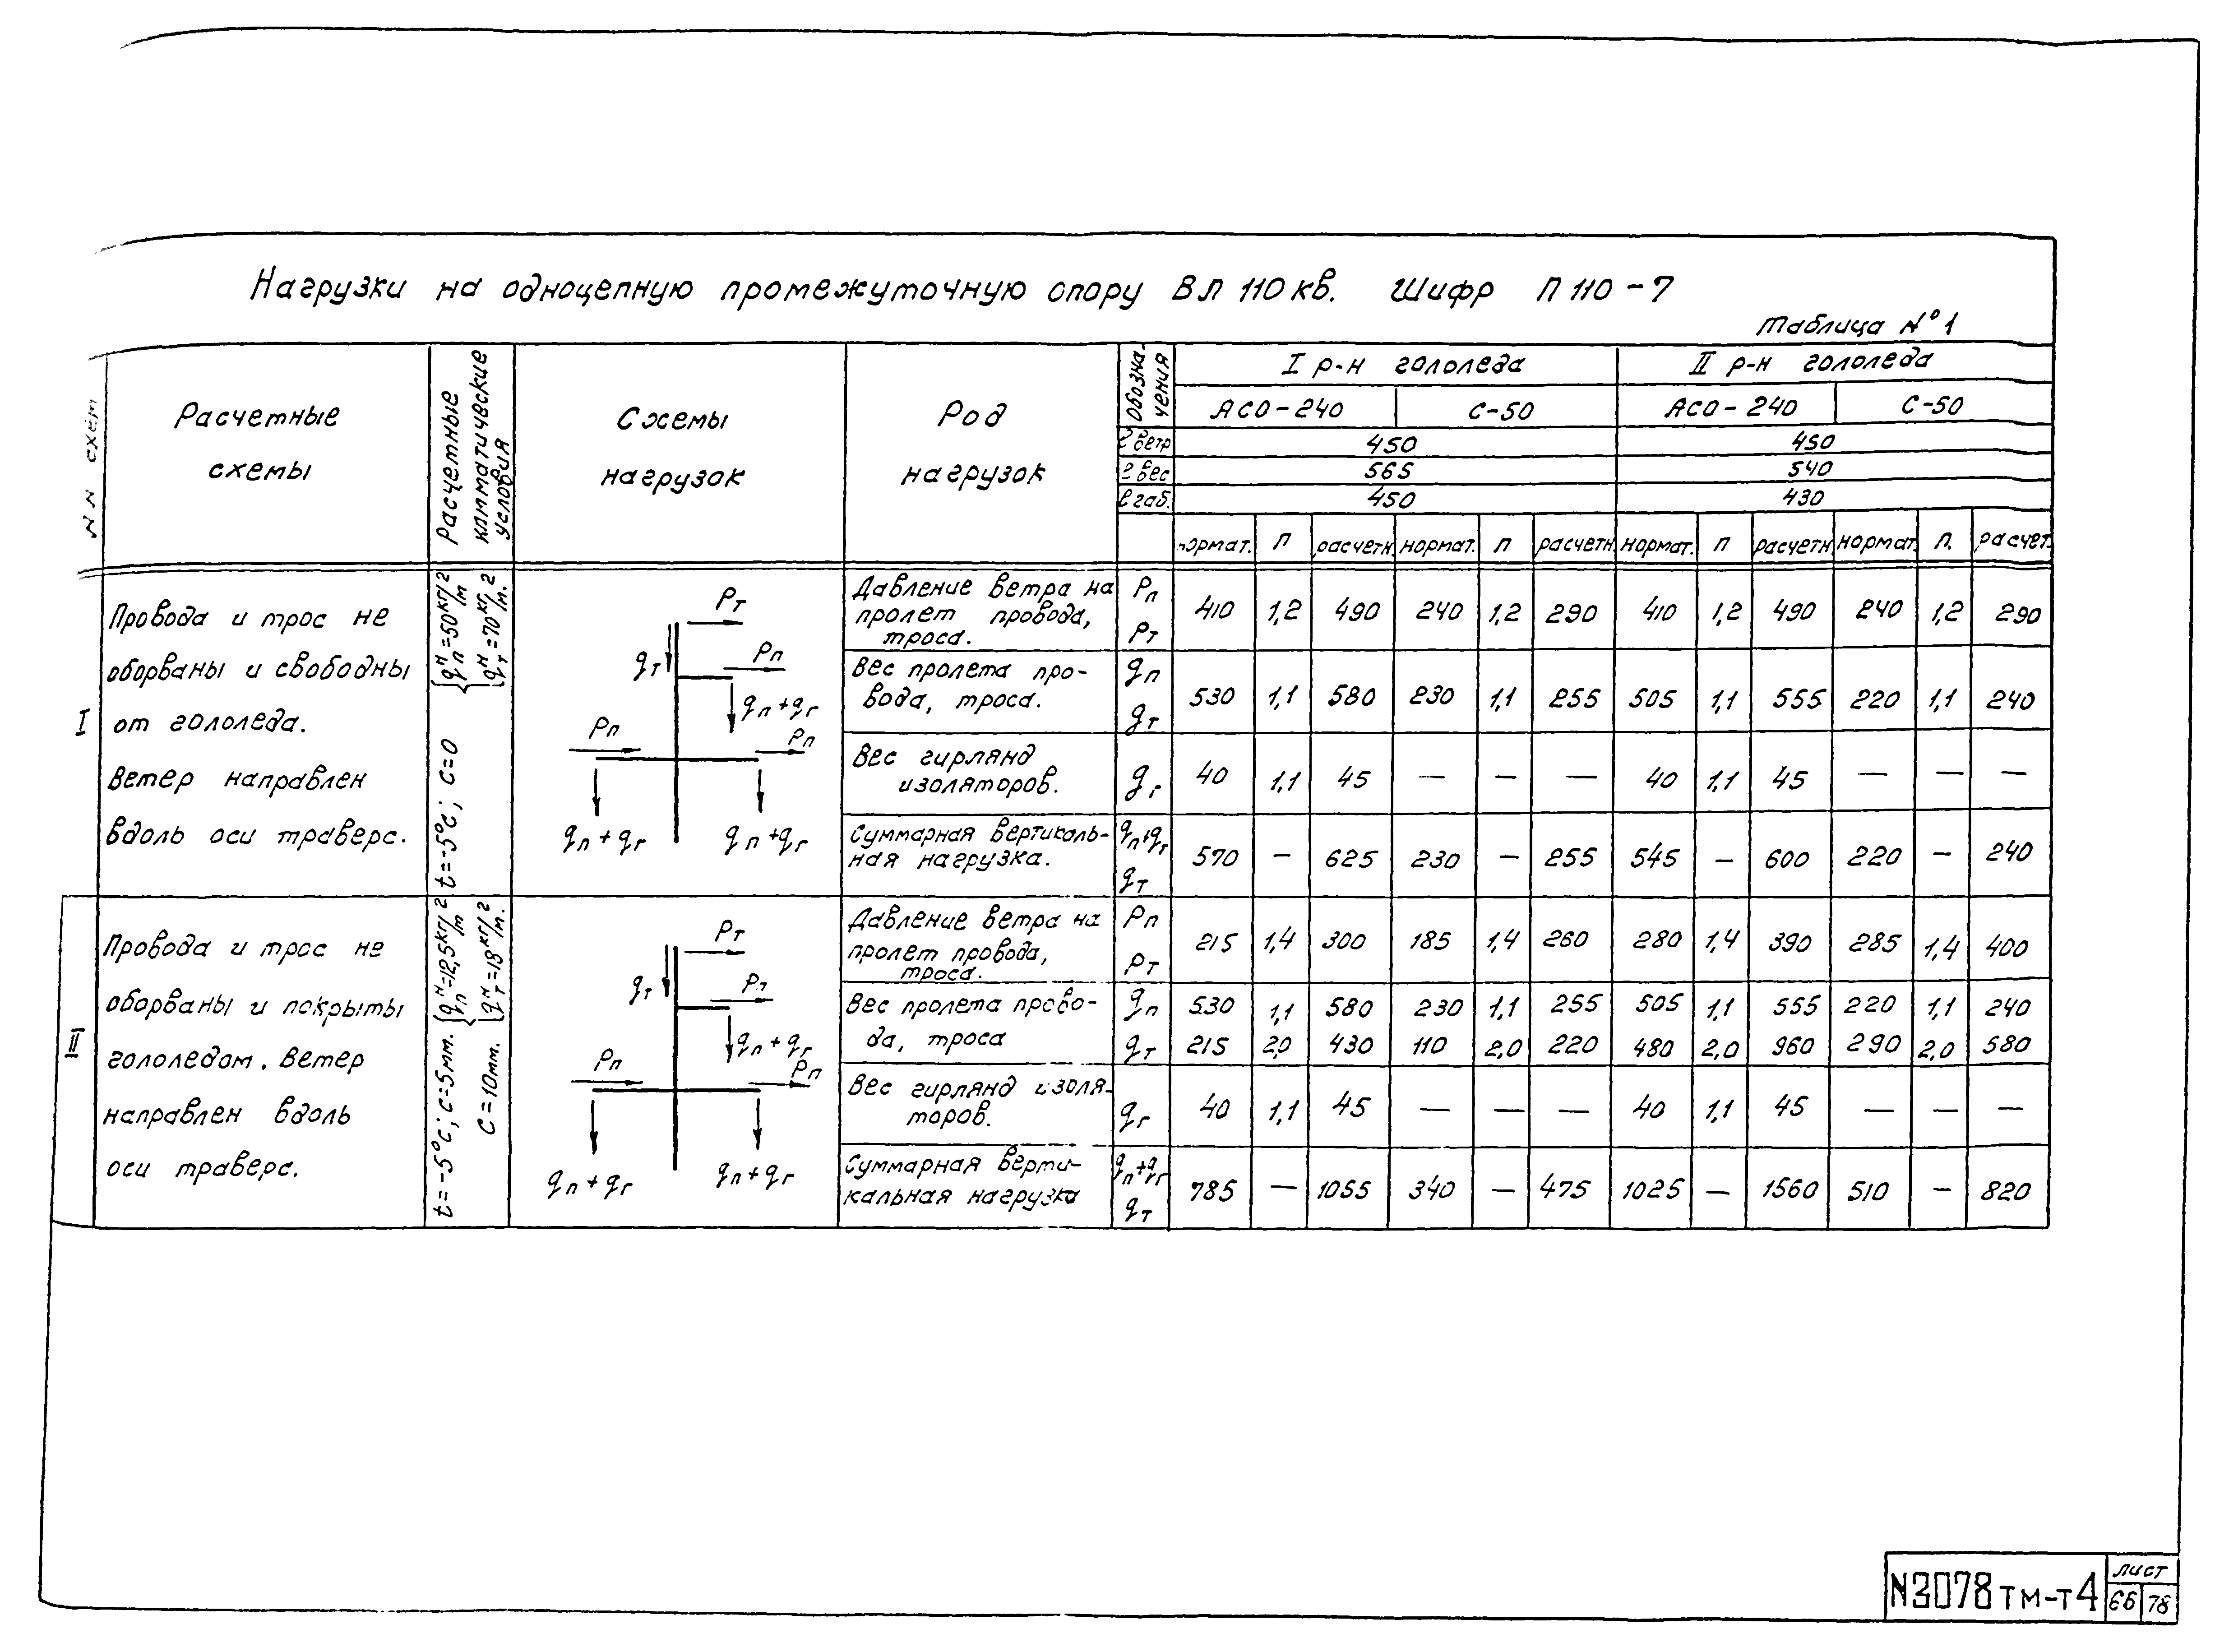 Нагрузки на одноцепную промежуточную опору ВЛ 110 кв. Шифр П 110-7
Таблица № 1
NN схем
Расчетные
схемы
Расчетные
климатические
условия
Схемы
нагрузок
Род
нагрузок
Обозна-
чения
I р-н гололеда
II р-н гололеда
АСО-240 С-50 АСО-240 С-50
ℓ ветр 450 450
ℓ вес 565 540
ℓ габ. 450 430
нормат. п расчетн. нормат. п расчетн. нормат. п расчетн. нормат. п. расчет.
I
Провода и трос не
оборваны и свободны
от гололеда.
Ветер направлен
вдоль оси траверс.
t=-5°С; С=0 { qпн=50 кг/м2
qтн=70 кг/м.2
Рт
qт
Рп
qп+qг
Рп
Рп
qп+qг
qп+qг
Давление ветра на
пролет провода,
троса.
Рп
Рт
410 1,2 490 240 1,2 290 410 1,2 490 240 1,2 290
Вес пролета про-
вода, троса.
qп
qт
530 1,1 580 230 1,1 255 505 1,1 555 220 1,1 240
Вес гирлянд
изоляторов.
qг
40 1,1 45 — — — 40 1,1 45 — — —
Суммарная вертикаль-
ная нагрузка.
qп+qг
qт
570 — 625 230 — 255 545 — 600 220 — 240
II
Провода и трос не
оборваны и покрыты
гололедом. Ветер
направлен вдоль
оси траверс.
t=-5°С; С=5мм. { qпн=12,5 кг/м2
С=10мм. qтн=18 кг/м.2
Рт
qт
Рп
qп+qг
Рп
Рп
qп+qг
qп+qг
Давление ветра на
пролет провода,
троса.
Рп
Рт
215 1,4 300 185 1,4 260 280 1,4 390 285 1,4 400
Вес пролета прово-
да, троса
qп 530 1,1 580 230 1,1 255 505 1,1 555 220 1,1 240
qт 215 2,0 430 110 2,0 220 480 2,0 960 290 2,0 580
Вес гирлянд изоля-
торов.
qг
40 1,1 45 — — — 40 1,1 45 — — —
Суммарная верти-
кальная нагрузка
qп+qг
qт
785 — 1055 340 — 475 1025 — 1560 510 — 820
N3078тм-т4
лист
66 78